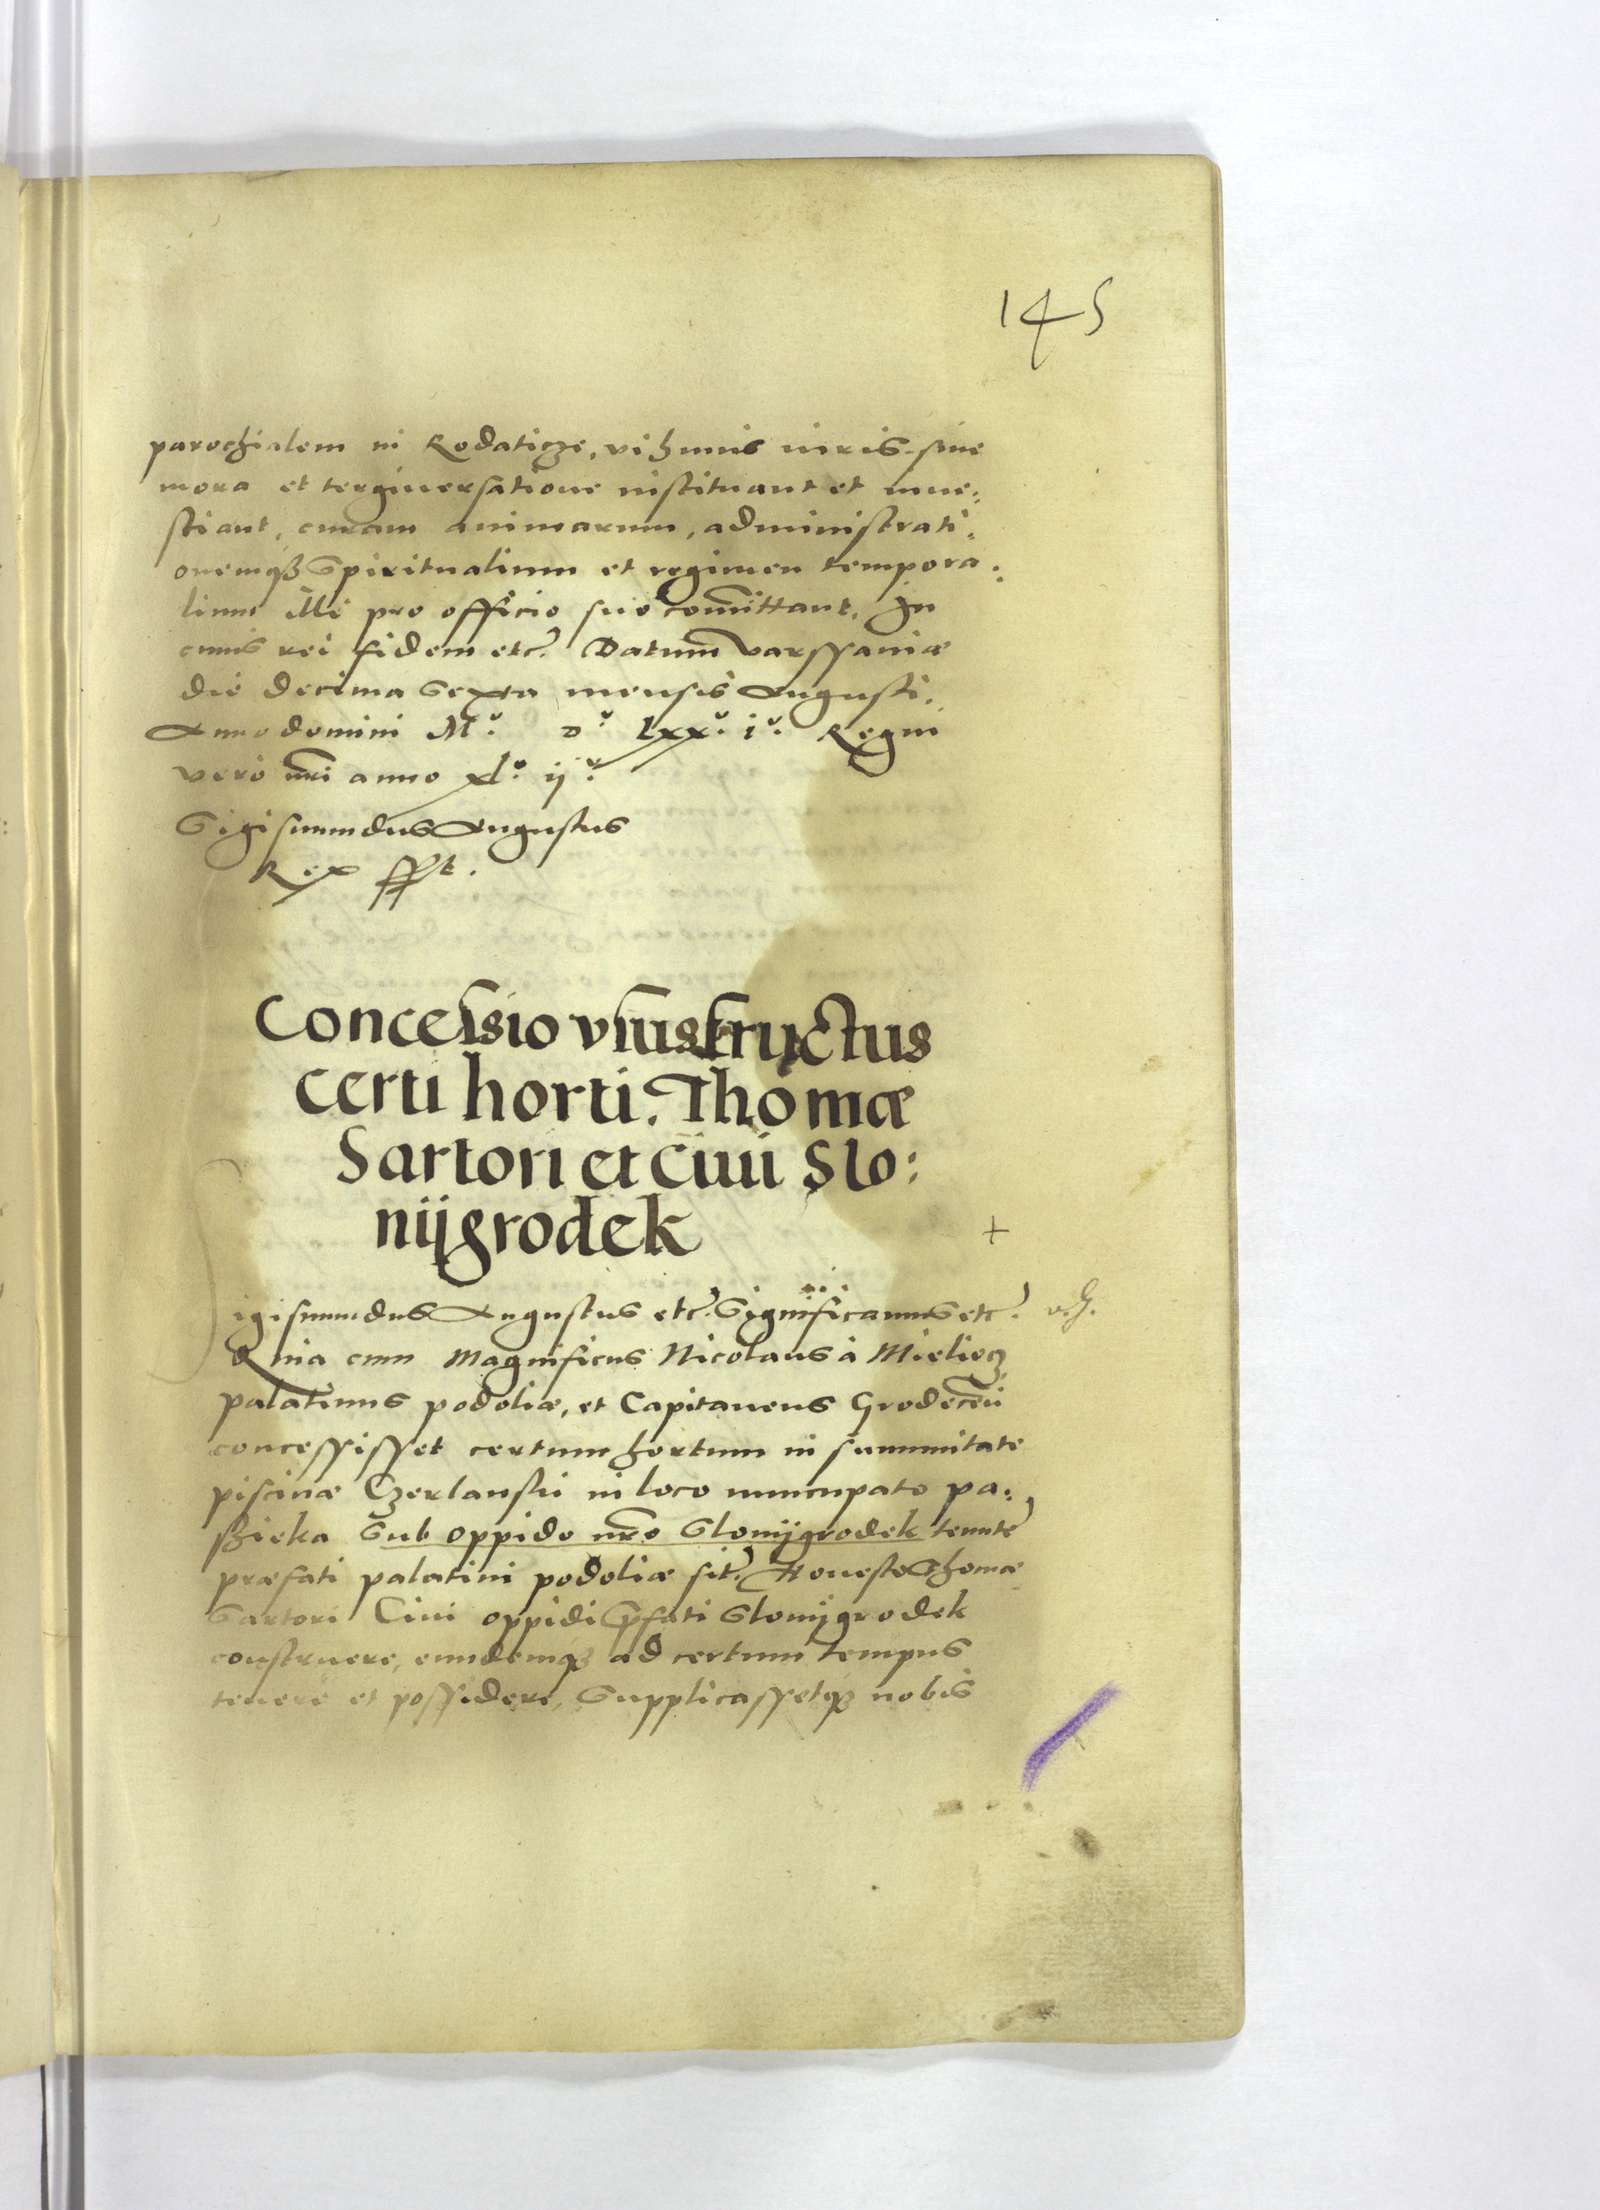 145
parochialem in Rodaticze, vihuius iuris sine
mora et tergiuersatione instituant et inue:
stiant, curam animarum, administrati:
onemq3 Spiritualium et regimen tempora:
lium illi pro officio suo com̃ittant. In
cuius rei fidem etc. Datum varssauiæ
die decima Sexta mensis Augusti.
Anno domini M.º D.º Lxx.º i.º Regni
vero nr̃i anno xl.º ij.º
Sigismundus Augustus
Rex sspt.
Concessio vsusfructus
certi horti. Thomæ
Sartori et Ciui Slo:
nijgrodek
+
igismundus Augustus etc. Significamus etc.
Quia cum Magnificus Nicolaus à Mieliecz
palatinus podoliæ, et Capitaneus Grodecẽn
concessisset certum hortum in summitate
piscinæ Czerlanski in loco nuncupato pa:
ssieka Sub oppido nr̃o Slonijgrodek tenute
præfati palatini podoliæ sit. Honesto Thomæ
Sartori Ciui oppidi p̃fati Slonijgrodek
construere, eundemq3 ad certum tempus
tenere et possidere, Supplicassetq3 nobis